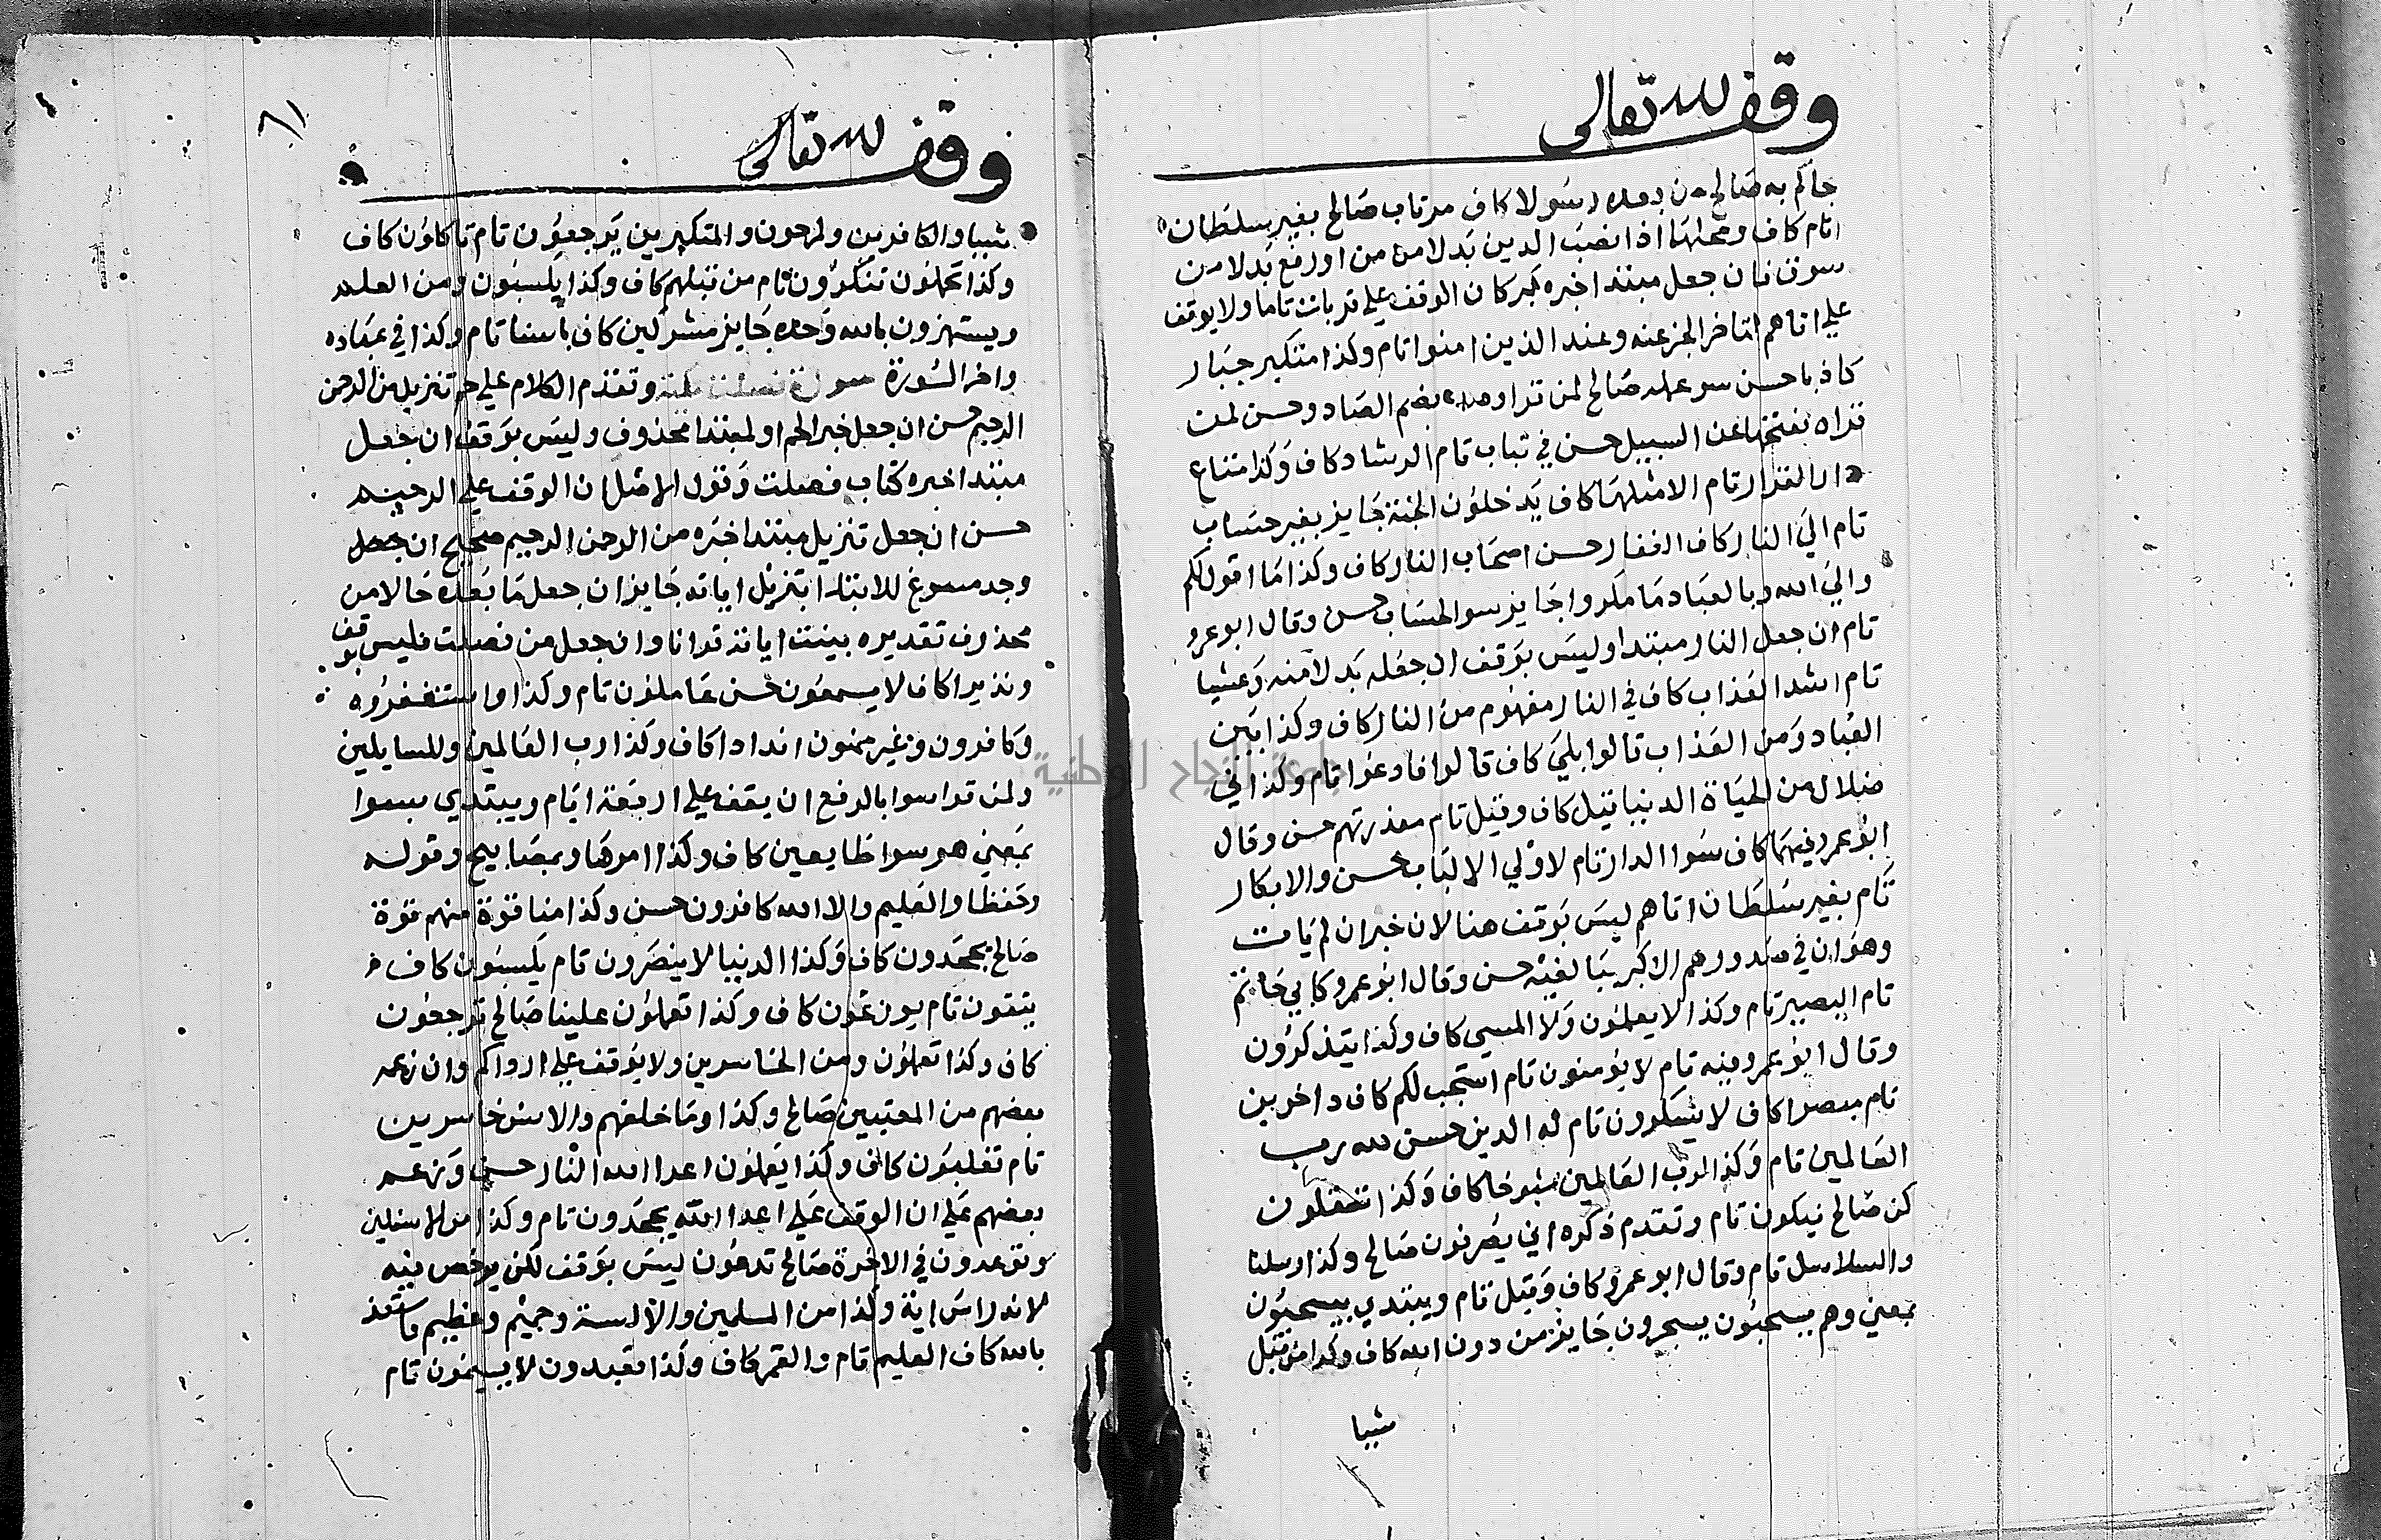 وقف لله تعالى
جاكم به صالح من بعده رسولا كاف مرتاب صالح بغير سلطان
اتاهم كاف ومحلها اذا نصب الدين بدلا من من او رفع بدلا من
مسرف فان جعل مبتدا خبره كبر كان الوقف على مرتاب تاما ولا يوقف
على اتاهم لتاخر الخبر عنه وعند الذين امنوا تام وكذا متكبر جبار
كاذبا حسن سو عمله صالح لمن قرا وصد بضم الصاد وحسن لمن
قراه بفتحها عن السبيل حسن في تباب تام الرشاد كاف وكذا متاع
دار القرار تام الا مثلها كاف يدخلون الجنة جايز بغير حساب
تام الى النار كاف الغفار حسن اصحاب النار كاف وكذا ما اقول لكم
والى الله وبالعباد ما مكروا جايز سو الحساب حسن وقال ابو عمرو
تام ان جعل النار مبتدا وليس بوقف ان جعله بدلا منه وعشيا
تام اشد العذاب كاف في النار مفهوم من النار كاف وكذا بين
العباد ومن العذاب قالوا بلى كاف قالوا فادعوا تام وكذا في
ضلال من الحياة الدنيا قيل كاف وقيل تام معذرتهم حسن وقال
ابو عمرو فيهما كاف سوا الدار تام لاولي الالباب حسن والابكار
تام بغير سلطان اتاهم ليس بوقف هنا لان خبر ان لم يات
وهو ان في صدورهم الا كبر ببالغيه حسن وقال ابو عمرو كابي حاتم
تام البصير تام وكذا لا يعلمون ولا المسي كاف وكذا يتذكرون
وقال ابو عمرو فيه تام لا يومنون تام استجب لكم كاف داخرين
تام مبصرا كاف لا يشكرون تام له الدين حسن لله رب
العالمين تام وكذا لرب العالمين شيوخا كاف وكذا تعقلون
كن صالح فيكون تام وتقدم ذكره اني يصرفون صالح وكذا رسلنا
والسلاسل تام وقال ابو عمرو كاف وقيل تام ويبتدي بيسحبون
بمعني وهم يسحبون يسجرون جايز من دون الله كاف وكذا من قبل
شيبا
وقف لله تعالى
شيبا والكافرين وتمرحون والمتكبرين يرجعون تام تاكلون كاف
وكذا تحملون تنكرون تام من قبلهم كاف وكذا يكسبون ومن العلم
ويستهزون بالله وحده جايز مشركين كاف باسنا تام وكذا في عباده
واخر السورة سورة فصلت مكية وتقدم الكلام على حم تنزيل من الرحمن
الرحيم حسن ان جعل خبر الحم او لمبتدا محذوف وليس بوقف ان جعل
مبتدا خبره كتاب فصلت وقول الاصل ان الوقف على الرحيم
حسن ان جعل تنزيل مبتدا خبره من الرحمن الرحيم صحيح ان جعل
وجد مسوغ للابتدا بتنزيل اياته جايز ان جعل ما بعده حالا من
محذوف تقديره بينت اياته قرانا وان جعل من فصلت فليس بوقف
ونذيرا كاف لا يسمعون حسن عاملون تام وكذا واستغفروه
وكافرون وغير ممنون اندادا كاف وكذا رب العالمين وللسايلين
ولمن قرا سوا بالرفع ان يقف على اربعة ايام ويبتدي بسوا
بمعني هو سوا طايعين كاف وكذا امرها وبمصابيح وقوله
وحفظا والعليم والا الله كافرون حسن وكذا منا قوة منهم قوة
صالح يجحدون كاف وكذا الدنيا لا ينصرون تام يكسبون كاف
يتقون تام يوزعون كاف وكذا تعملون علينا صالح ترجعون
كاف وكذا تعملون ومن الخاسرين ولا يوقف على ارداكم وان زعمه
بعضهم من المعتبين صالح وكذا وما خلفهم والانس خاسرين
تام تغلبون كاف وكذا يعملون اعدا الله النار حسن وزعم
بعضهم على ان الوقف على اعدا الله يجحدون تام وكذا من الاسفلين
وتوعدون في الاخرة صالح تدعون ليس بوقف لكن يرخص فيه
لانه راس اية وكذا من المسلمين والا السية وحميم وعظيم فاستعذ
بالله كاف العليم تام والقمر كاف وكذا تعبدون لا يسمون تام